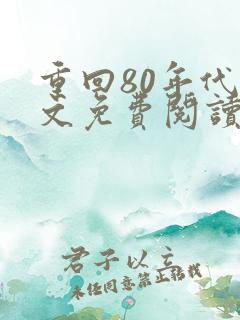 重回80年代
文免費閱讀
君子以立
未任同意禁止轉載